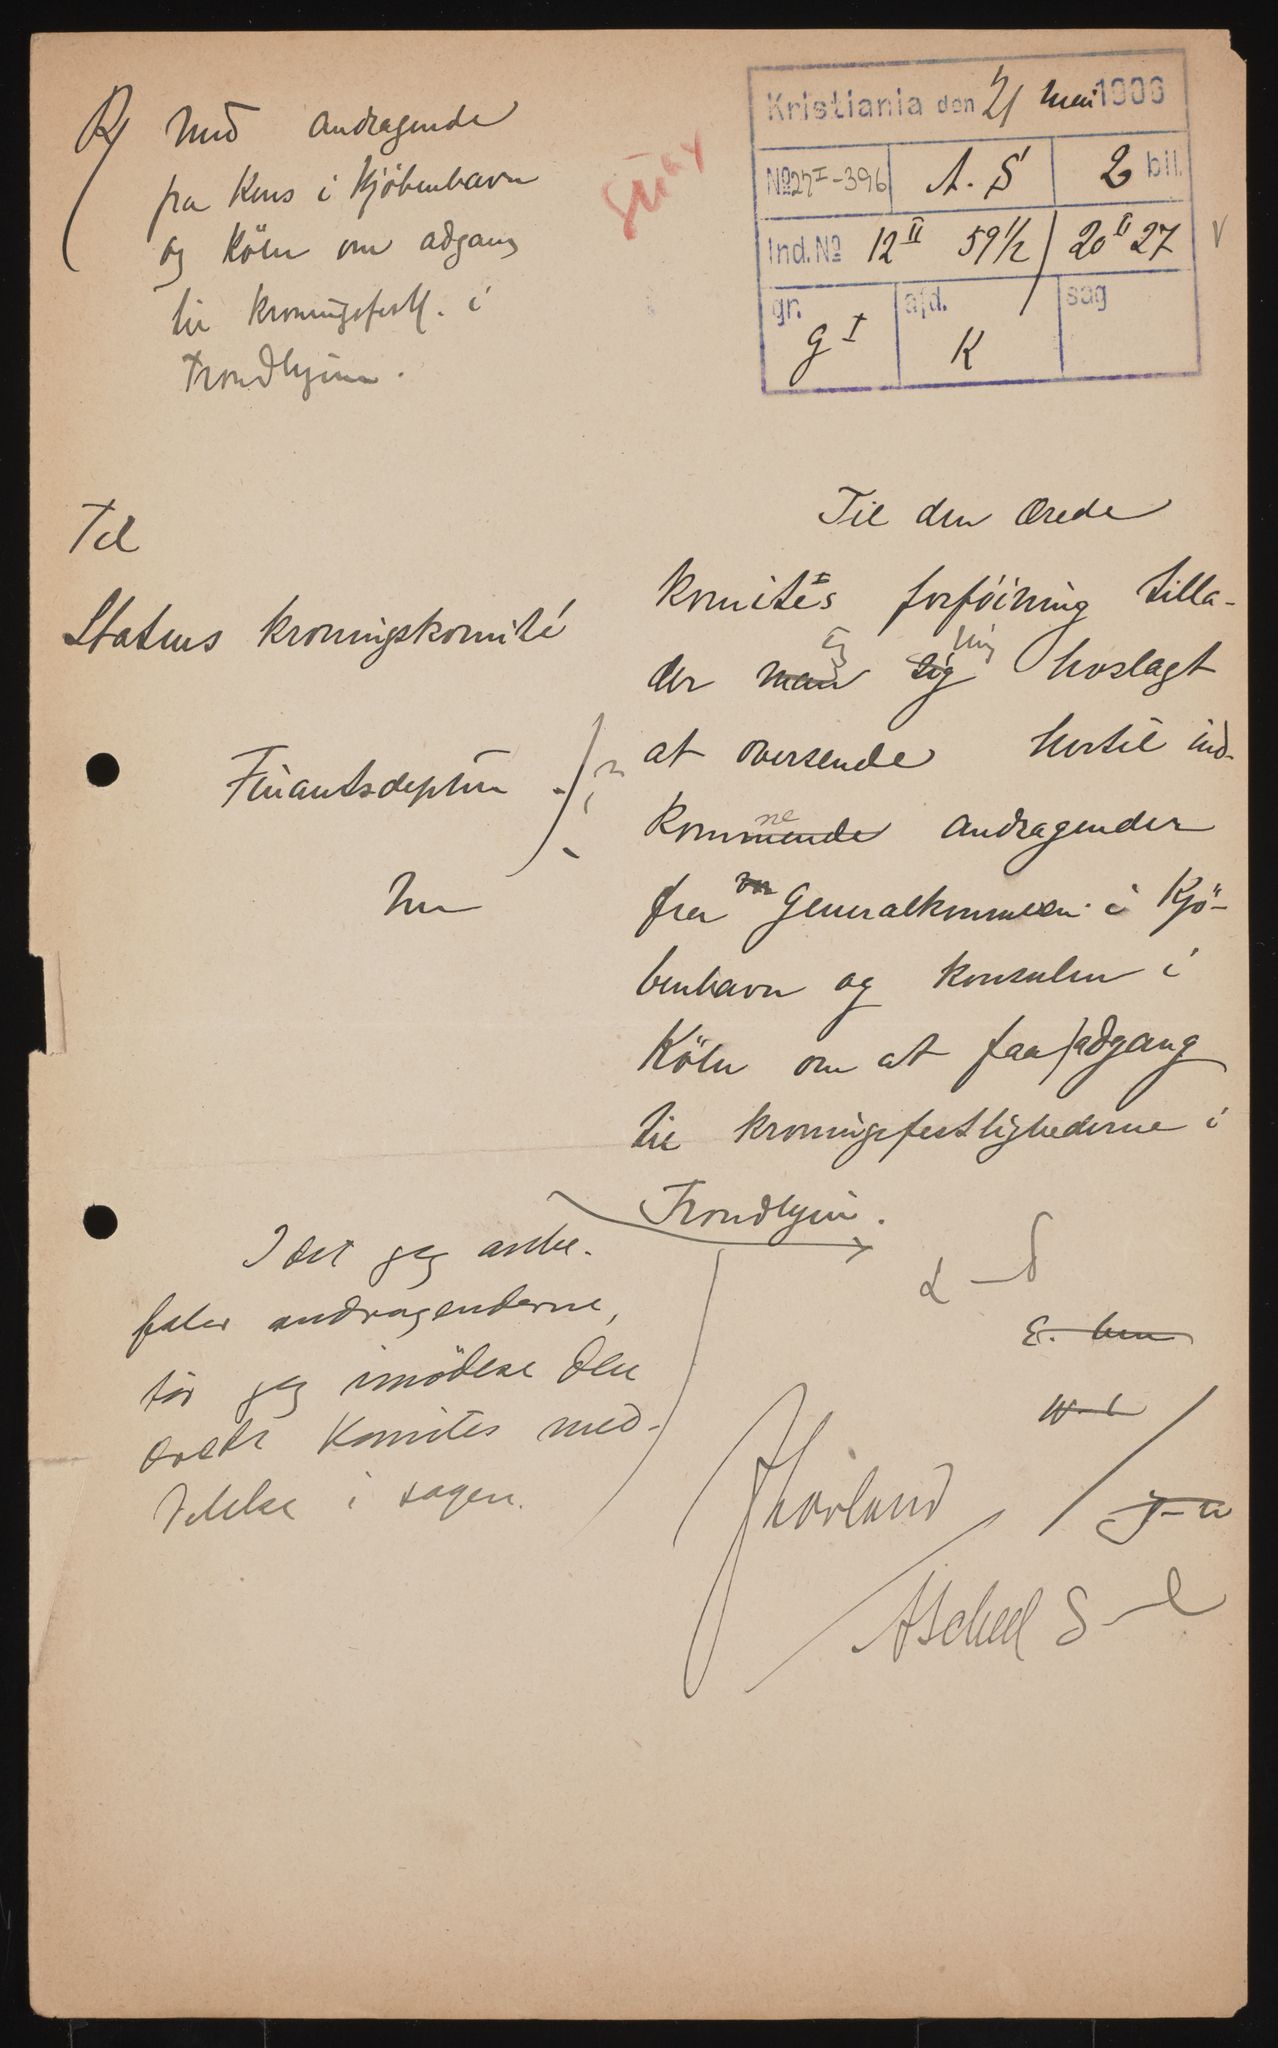 R/ med andragende
fra Kons i Kjöbenhavn
og Köln om adgang
til kroningsfestl. i
Trondhjem.
Kristiania den 21 mai 1906
No 27 I-396 A. S 2 bil.
Ind. No 12 II 59 1/2 / 20 II 27 V
gr. g I afd. K sag
Til
Statens kroningskomité
Finantsdeptm
hr
Til den ærede
komité's forföining tilla-
der man jeg sig mig hoslagt
at oversende hertil ind-
kommende ne andragender
fra Generalkonsulen i Kjö-
benhavn og konsulen i
Köln om at faa adgang
til kroningsfestlighederne i
Trondhjem.
Idet jeg anbe-
faler andragenderne,
tör jeg imödese den
ærede Komites med-
delelse i sagen.
L–d
JLövland
AScheel S–l